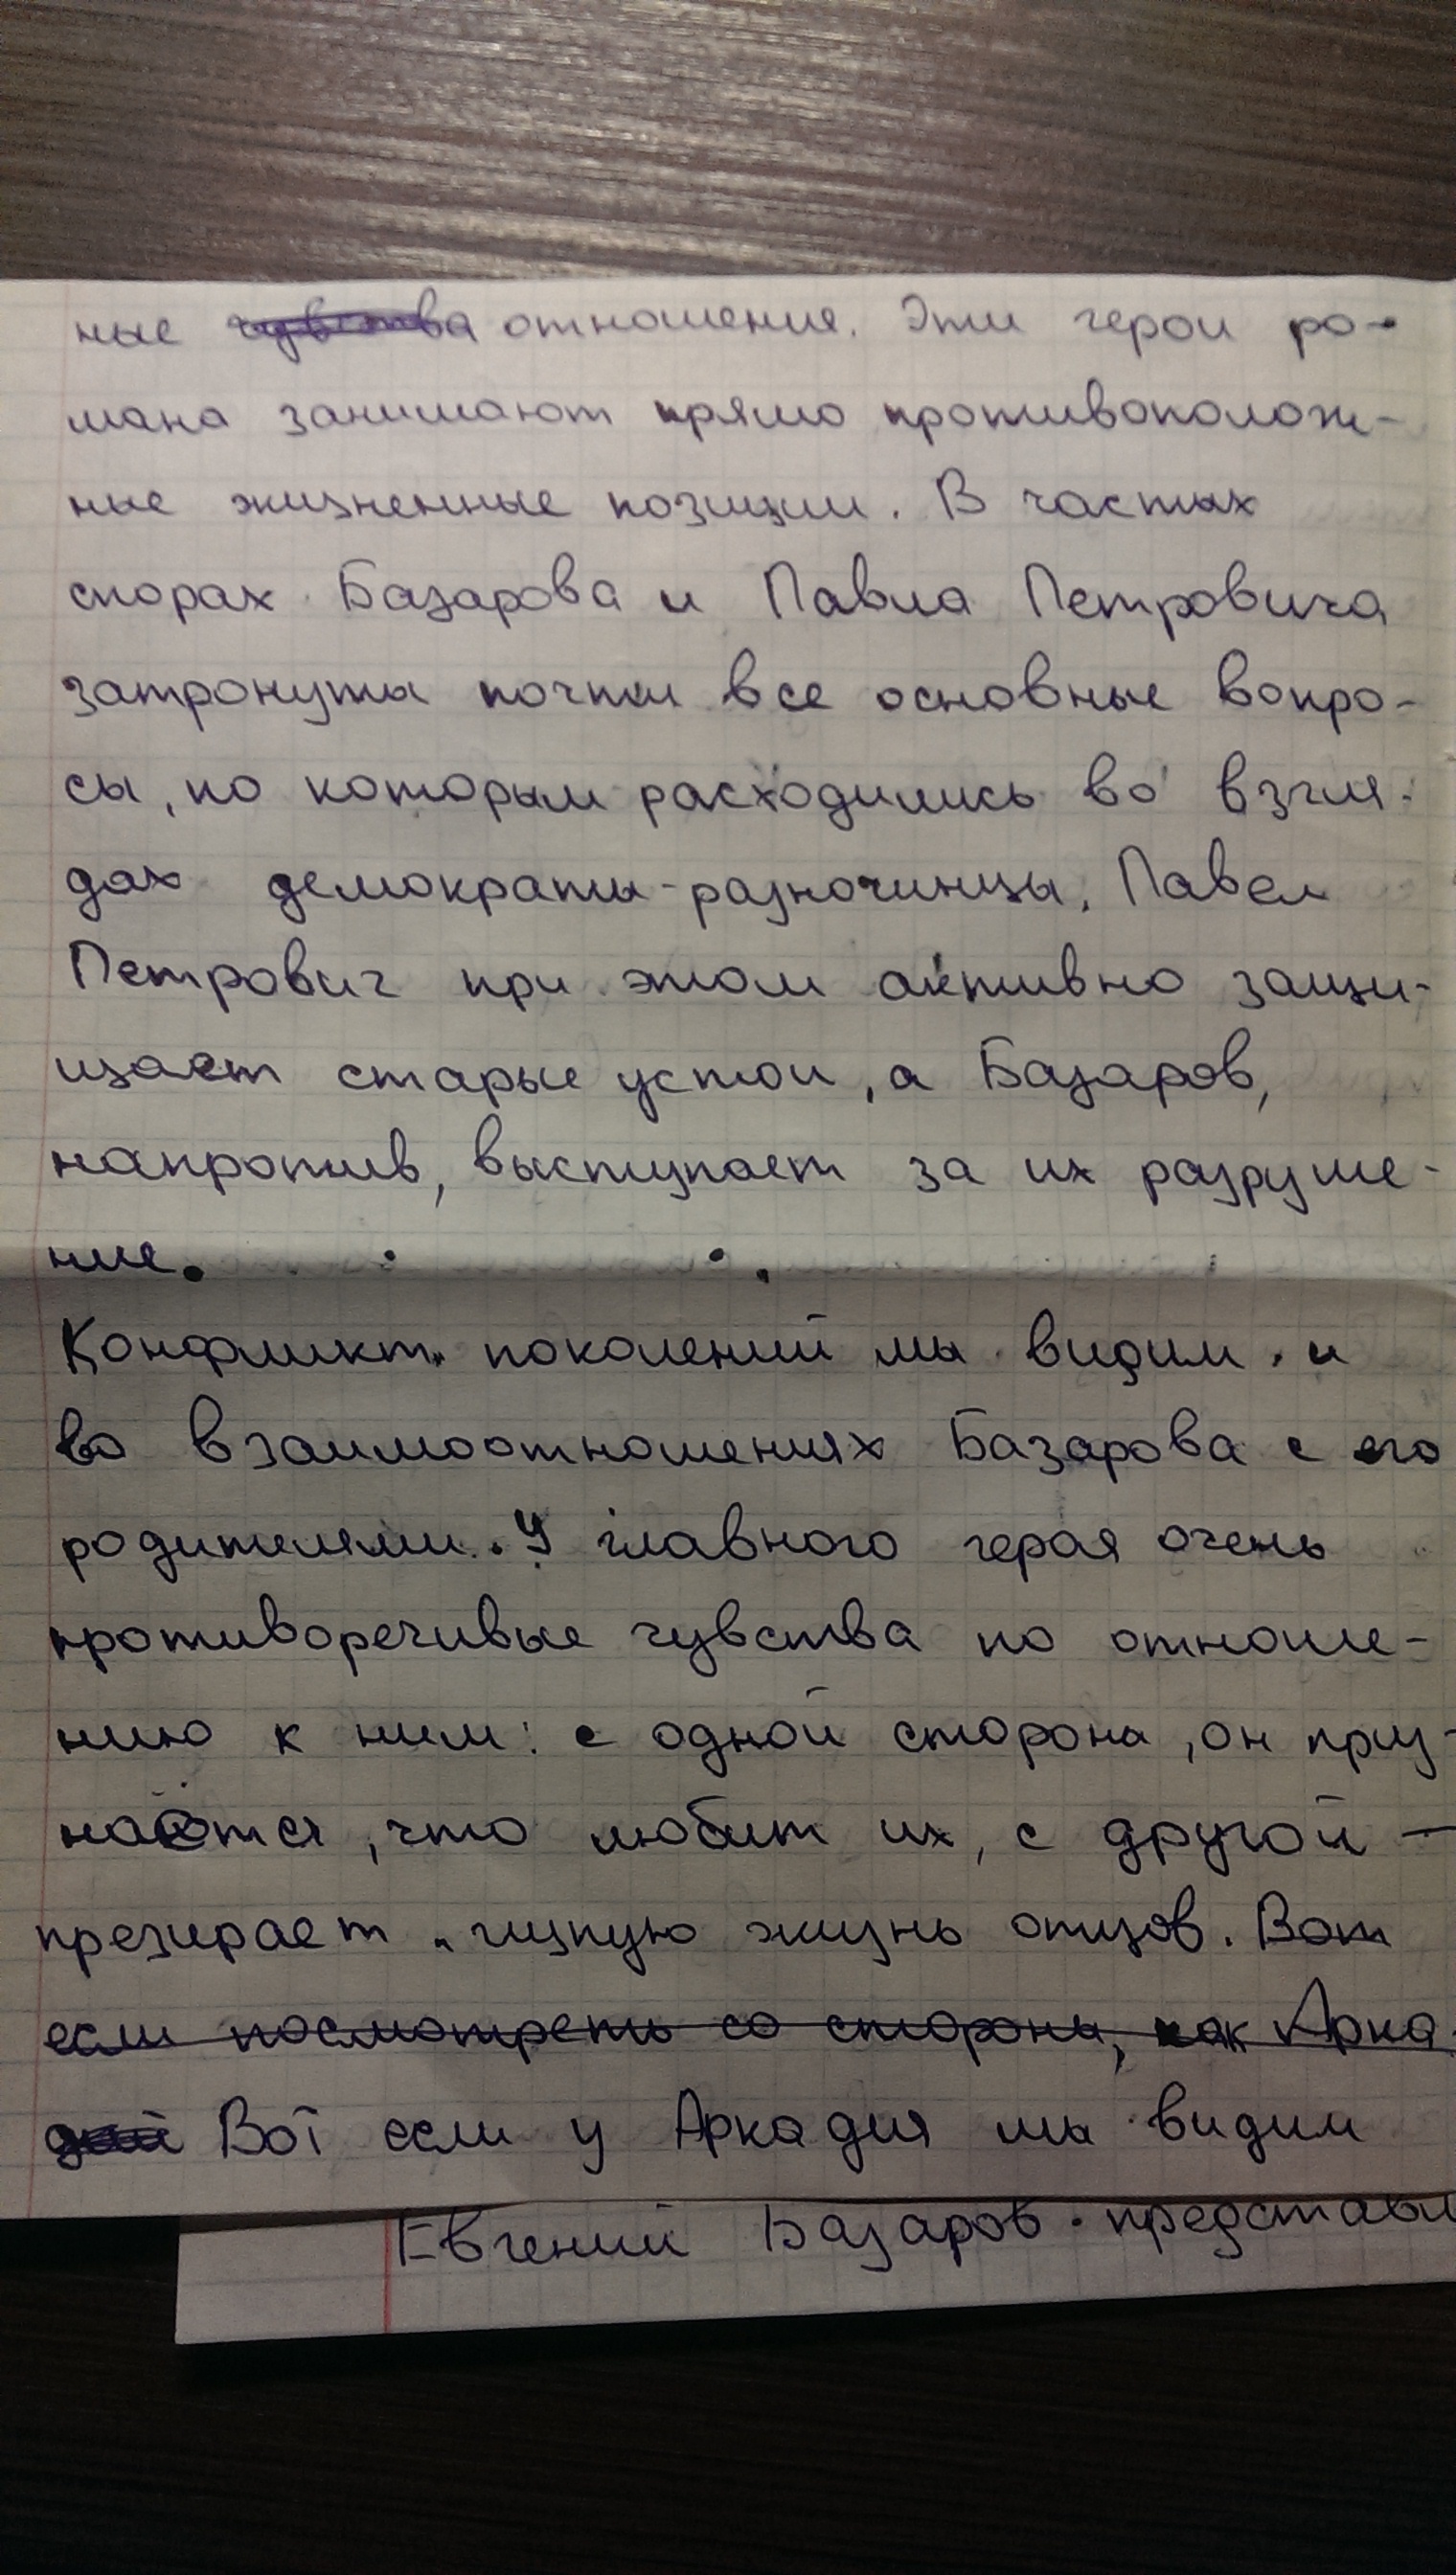 ные чувства отношения. Эти герои ро-
мана занимают прямо противополож-
ные жизненные позиции. В частых
спорах Базарова и Павла Петровича
затронуты почти все основные вопро-
сы, по которым расходились во взгля-
дах демократы-разночинцы. Павел
Петрович при этом активно защи-
щает старые устои, а Базаров,
напротив, выступает за их разруше-
ние.
Конфликт поколений мы видим и
во взаимоотношениях Базарова с его
родителями. У главного героя очень
противоречивые чувства по отноше-
нию к ним: с одной стороны, он приз-
наётся, что любит их, с другой —
презирает глупую жизнь отцов. Вот
если посмотреть со стороны, как Арка-
дий Вот если у Аркадия мы видим
Евгений Базаров представи